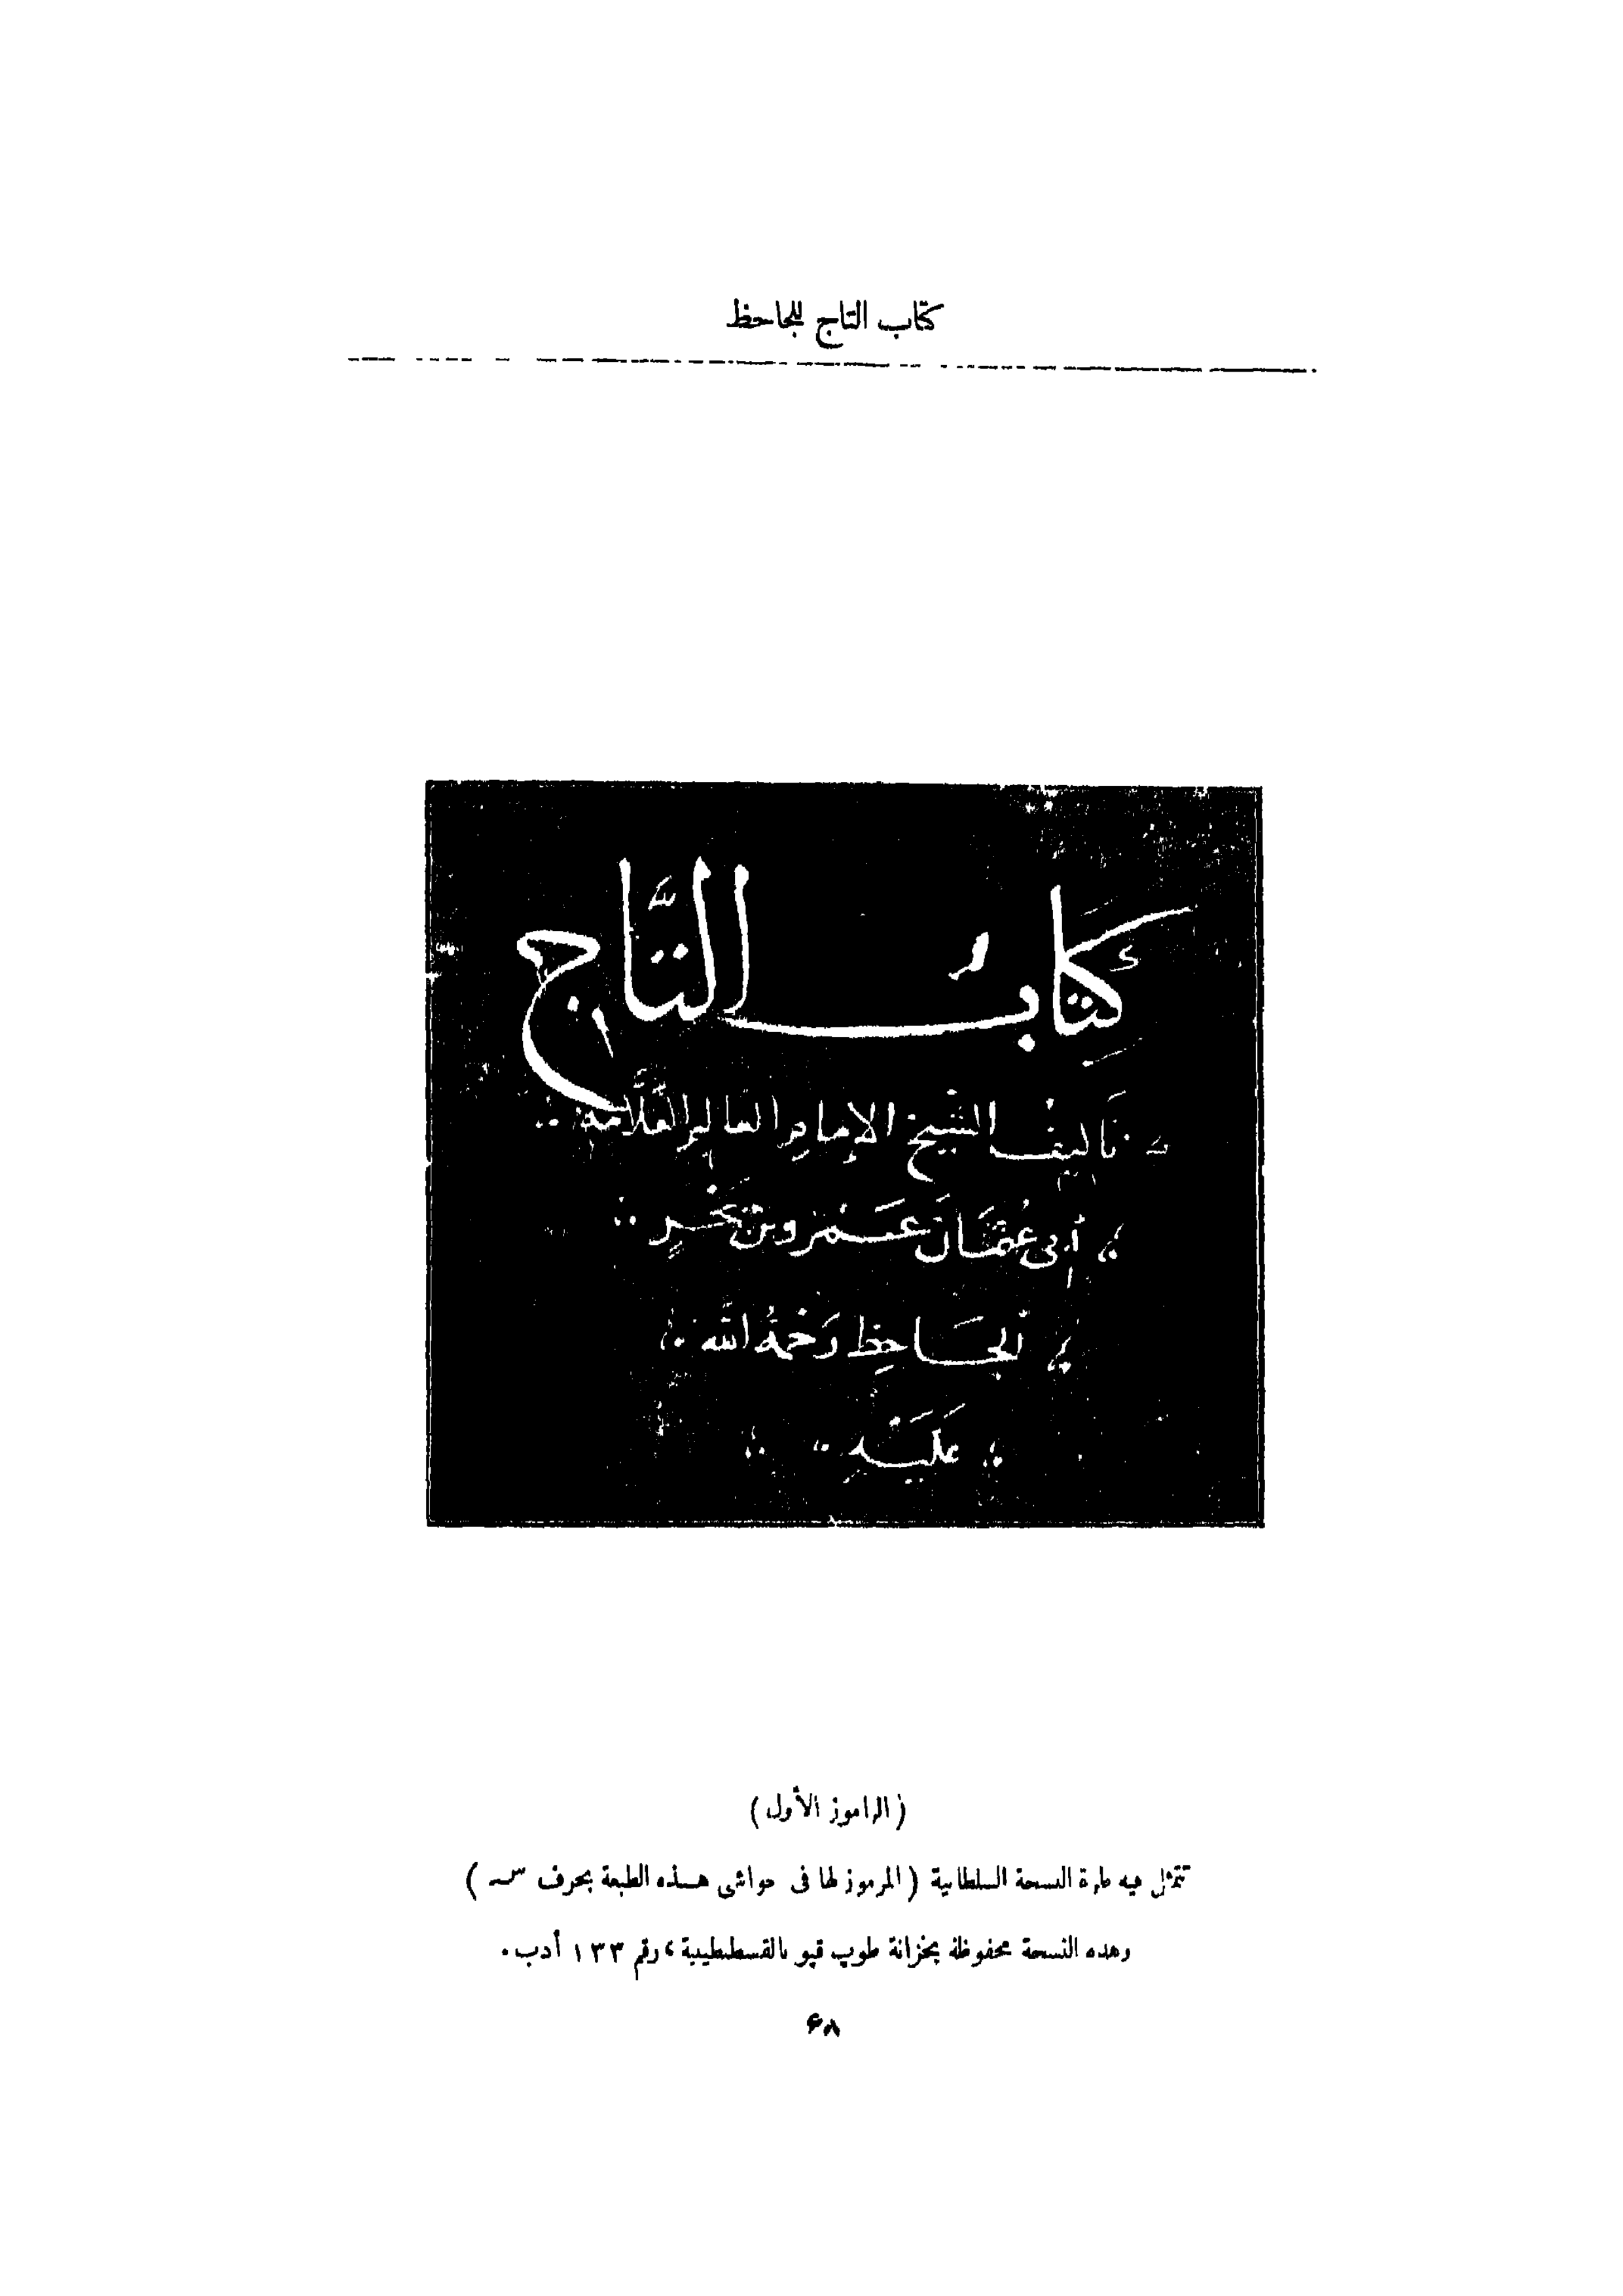 كتاب التاج للجاحظ
كتابُ التَّاج
تأليف الشيخ الإمام العالم العلّامة
أبى عثمان عمرو بن بحر
الجاحظ رحمة الله
عليه
(الراموز الأول)
تتمثل فيه طرة النسخة السلطانية (المرموز لها فى حواشى هذه الطبعة بحرف س)
وهذه النسخة محفوظة بخزانة طوپ قپو بالقسطنطينية، رقم ١٣٣ أدب.
۶۸